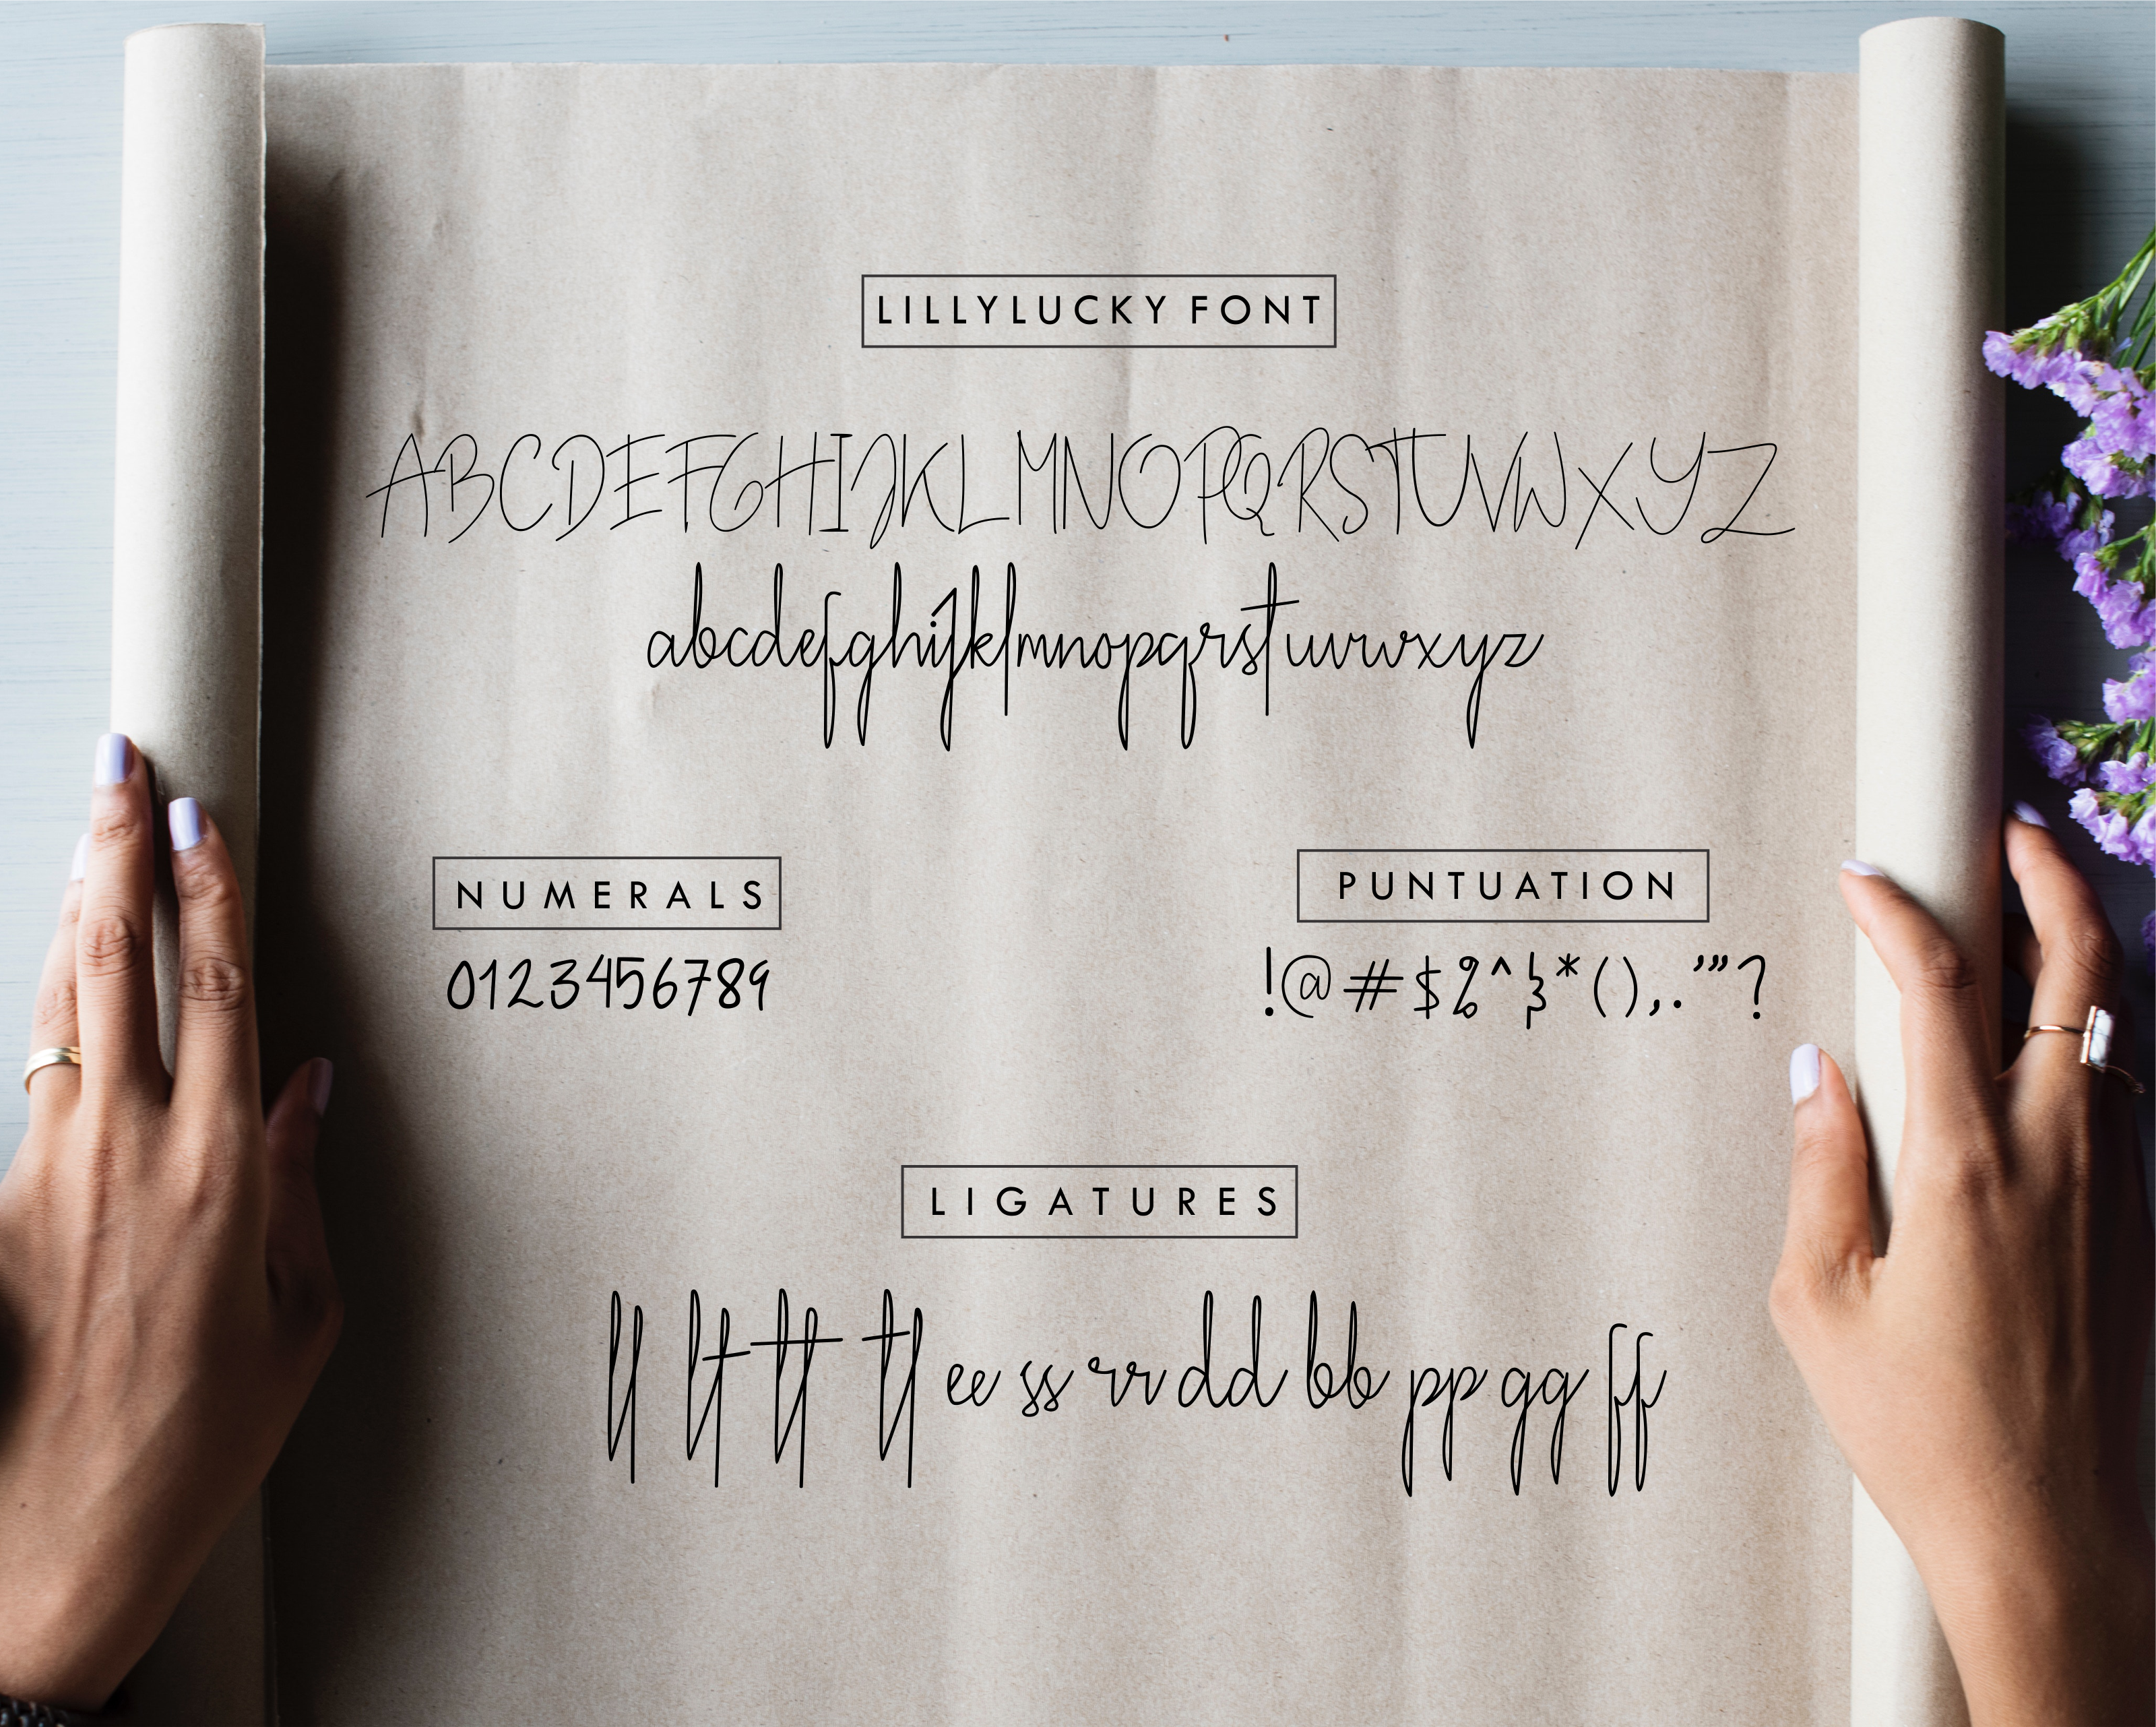 LILLYLUCKY FONT
ABCDEFGHIJKLMNOPQRSTUVWXYZ
abcdefghijklmnopqrstuvwxyz
NUMERALS
0123456789
PUNTUATION
!@#$%^&*(),.'"?
LIGATURES
ll lt tt tl ee ss rr dd bb pp gg ff